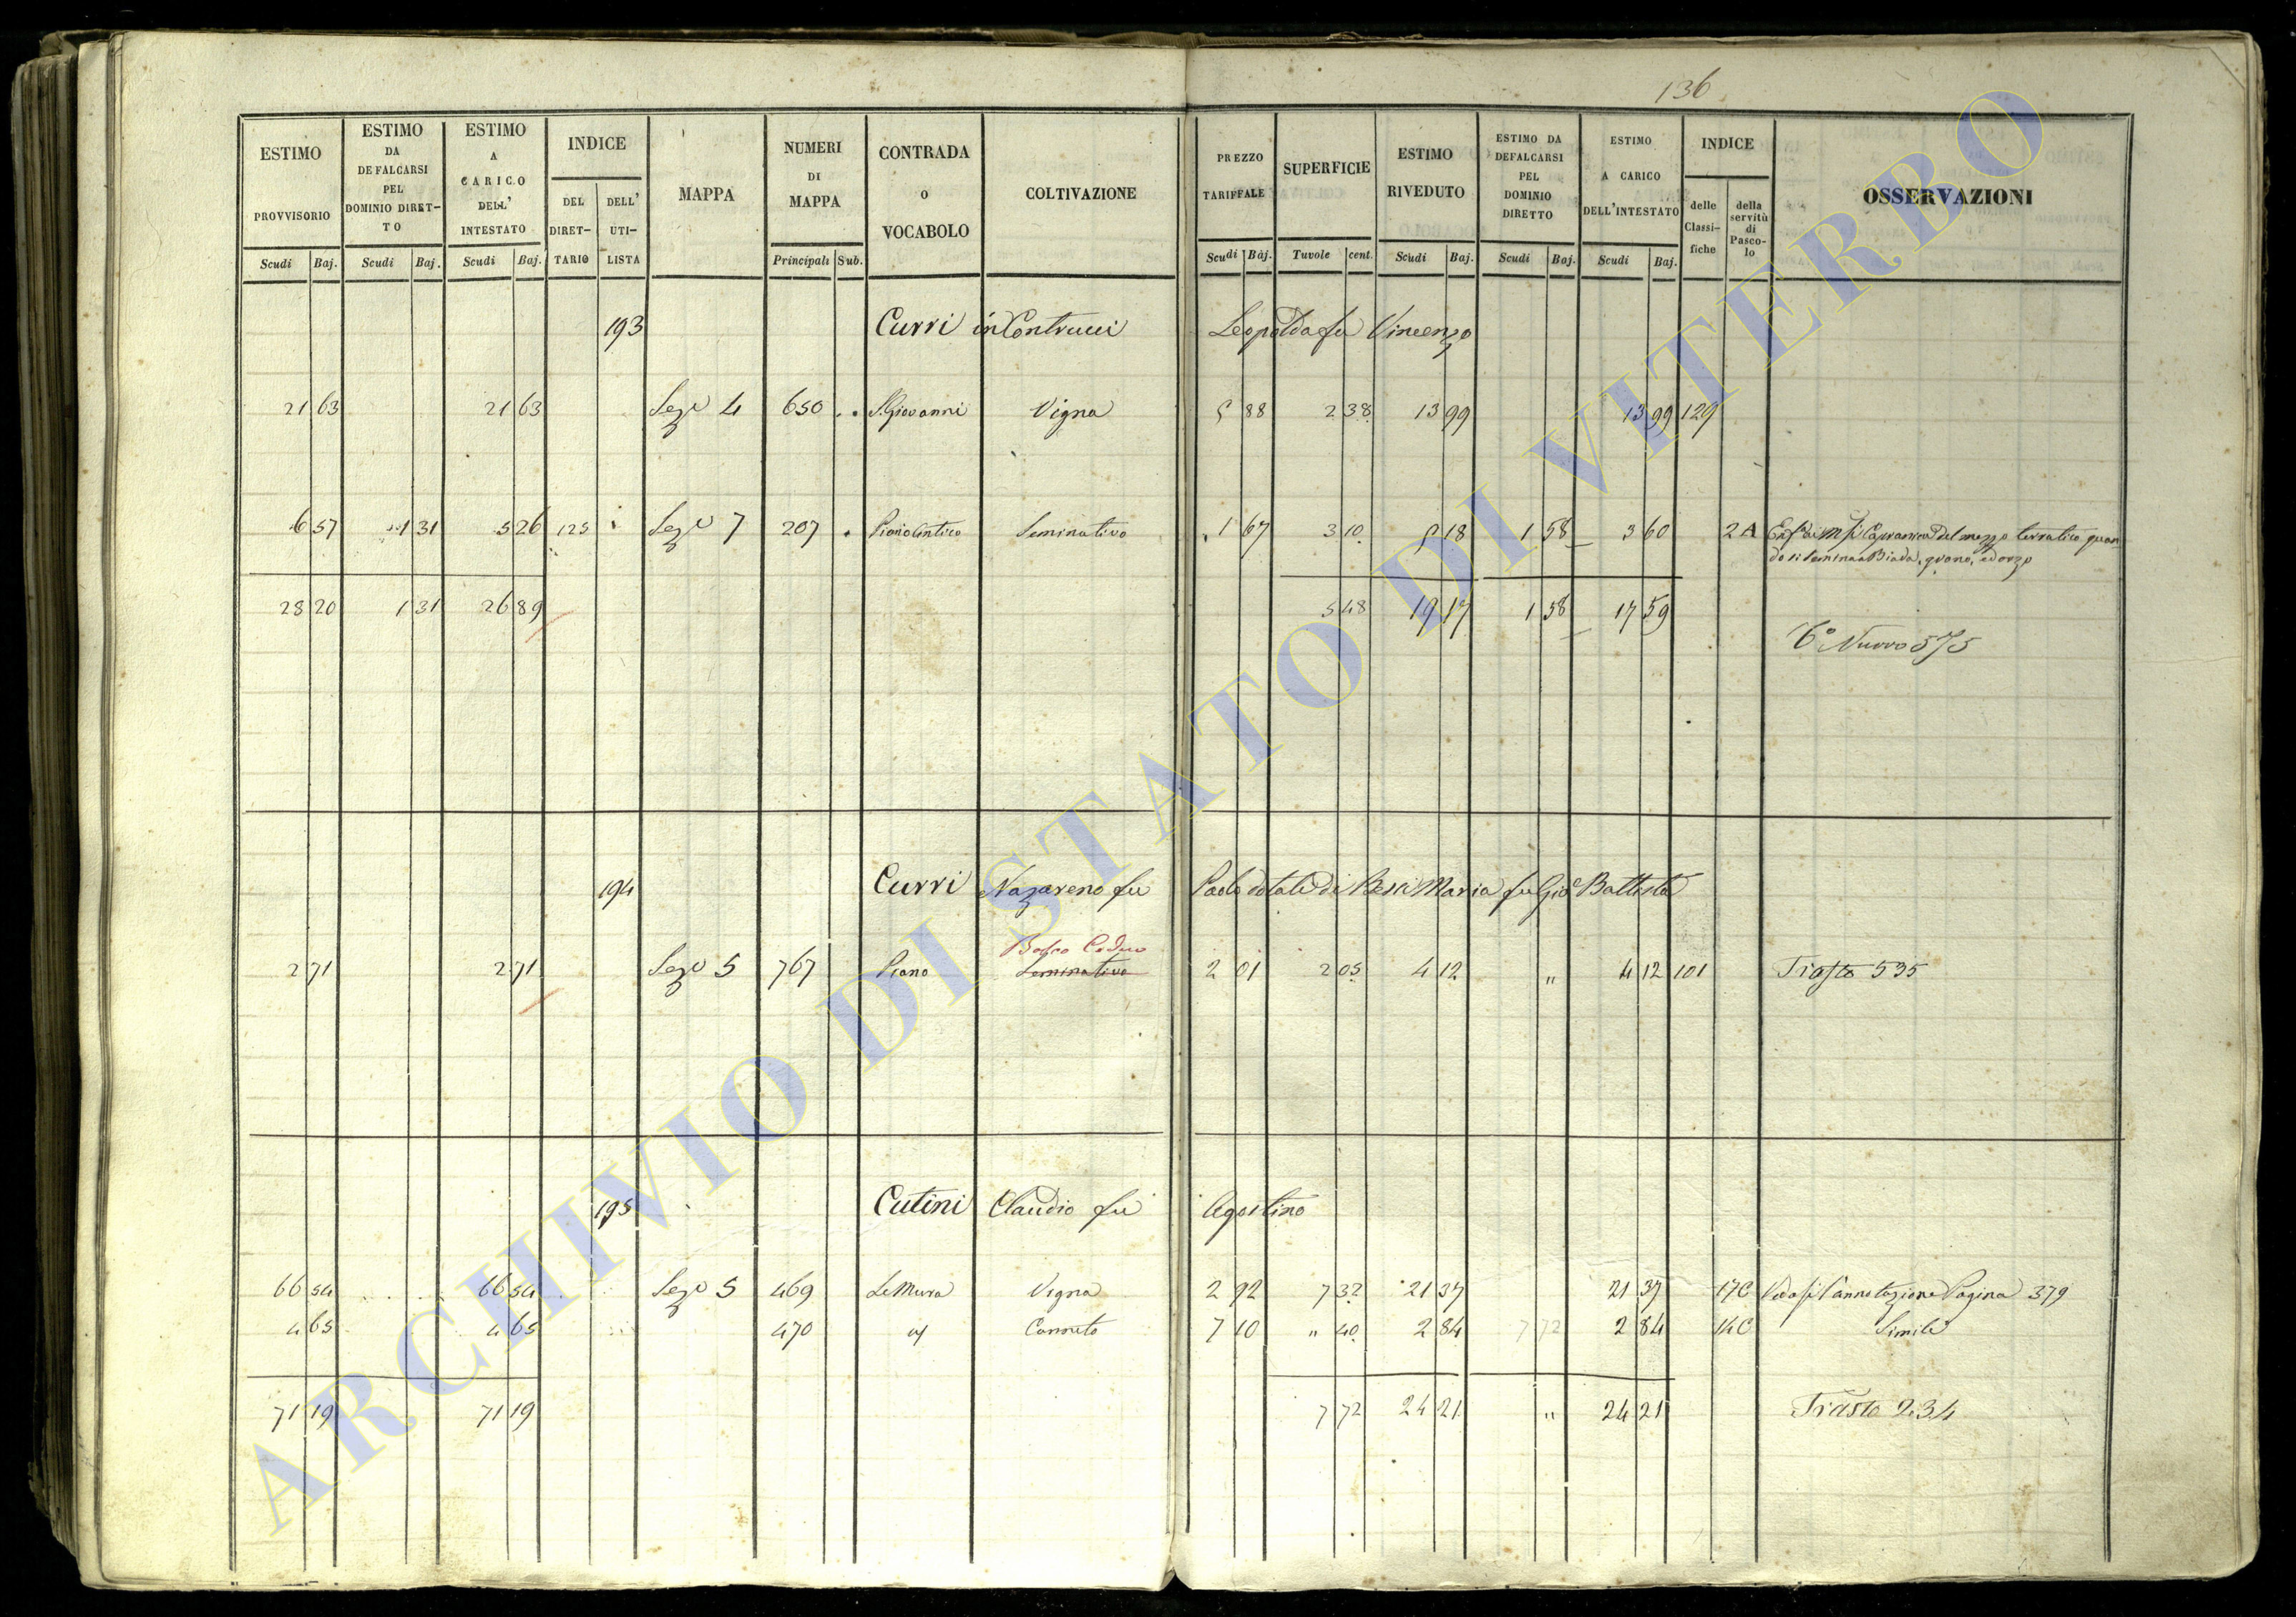 136
ESTIMO PROVVISORIO Scudi Baj. ESTIMO DA DEFALCARSI PEL DOMINIO DIRETTO Scudi Baj. ESTIMO A CARICO DELL' INTESTATO Scudi Baj. INDICE DEL DIRETTARIO DELL' UTILISTA MAPPA NUMERI DI MAPPA Principali Sub. CONTRADA O VOCABOLO COLTIVAZIONE PREZZO TARIFFALE Scudi Baj. SUPERFICIE Tavole cent. ESTIMO RIVEDUTO Scudi Baj. ESTIMO DA DEFALCARSI PEL DOMINIO DIRETTO Scudi Baj. ESTIMO A CARICO DELL'INTESTATO Scudi Baj. INDICE delle Classifiche della servitù di Pascolo OSSERVAZIONI
193 Curri in Contrucci Leopolda fu Vincenzo
21 63 21 63 Seze 4 650 S. Giovanni Vigna 5 88 2 38 13 99 13 99 129
6 57 1 31 5 26 125 Seze 7 207 Piano Antico Seminativo 1 67 3 10 5 18 1 58 3 60 2A Capranica del mezzo terratico quan
do si semina a Biada, grano, ed orzo
28 20 1 31 26 89 5 48 19 17 1 58 17 59
Nuovo 575
194 Curri Nazareno fu Paolo dotale di Maria fu Gio Battista
Bosco Ceduo
2 71 2 71 Seze 5 767 Piano Seminativo 2 01 2 05 4 12 " 4 12 101 535
195 Cutini Claudio fu Agostino
66 54 66 54 Seze 5 469 Le Mura Vigna 2 92 7 32 21 37 21 37 17C l'annotazione Pagina 379
4 65 4 65 470 Canneto 7 10 " 40 2 84 7 72 2 84 14C Simile
71 19 71 19 7 72 24 21 " 24 21 234
ARCHIVIO DI STATO DI VITERBO